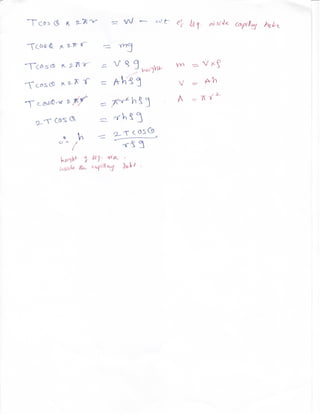 T cos θ × 2πr = W – wt of liq. inside capillary tube
T cos θ × 2πr = mg
T cos θ × 2πr = Vρg m = V×ρ
height
T cos θ × 2πr = Ahρg V = Ah
T cos θ × 2πr = πr²hρg A = πr²
2T cos θ = rhρg
∴ h = 2T cos θ / rρg
height of liq. rise
inside the capillary tube.